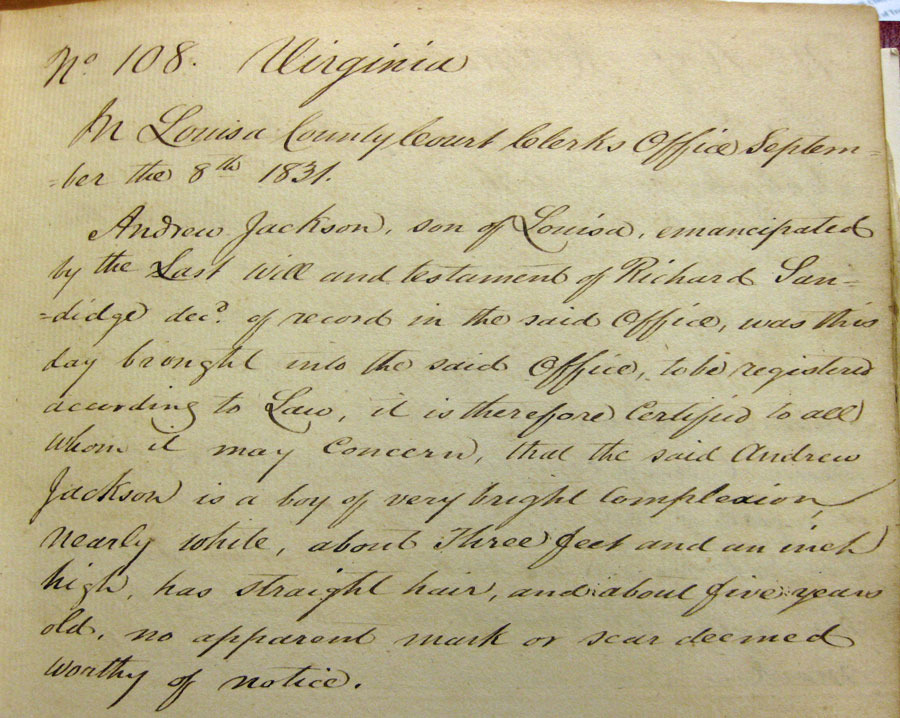 No. 108. Virginia
In Louisa County Court Clerks Office Septem=
=ber the 8th 1831.
Andrew Jackson, son of Louisa, emancipated
by the Last will and testament of Richard San=
=didge decd. of record in the said Office, was this
day brought into the said Office, to be registered
according to Law, it is therefore Certified to all
whom it may Concern, that the said Andrew
Jackson is a boy of very bright Complexion,
nearly white, about Three feet and an inch
high, has straight hair, and about five years
old, no apparent mark or scar deemed
worthy of notice.